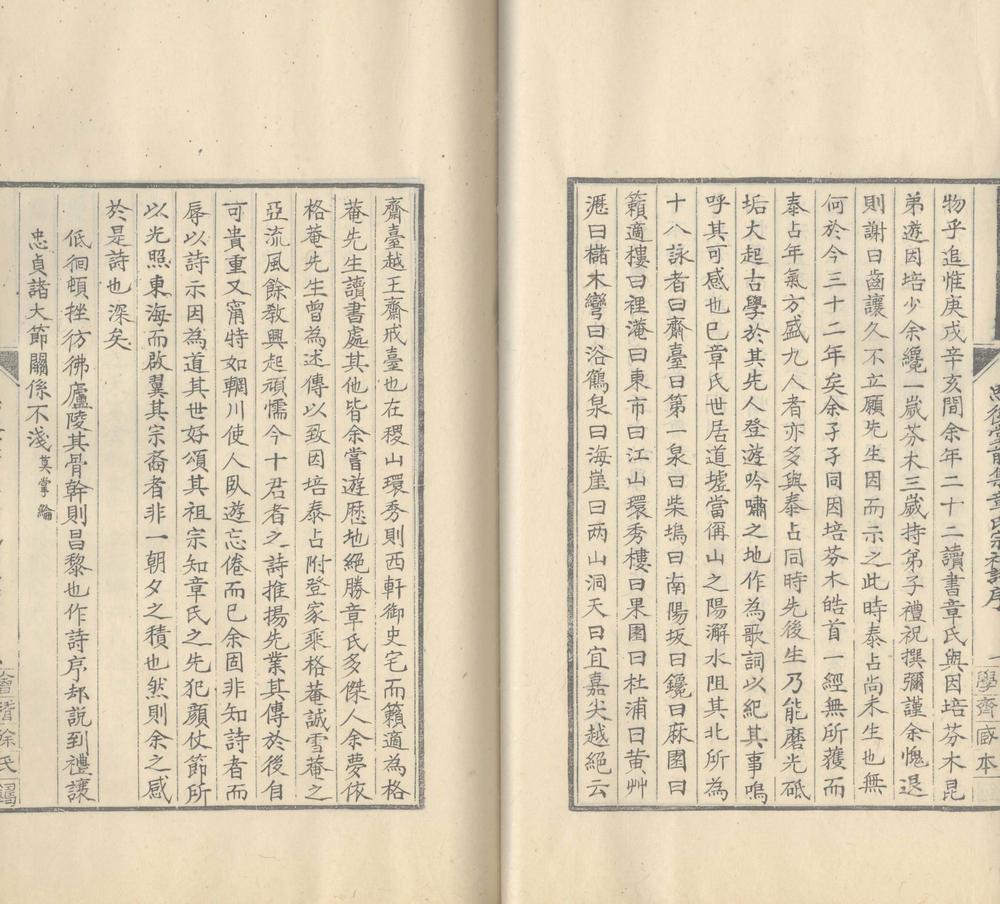 物乎追惟庚戌辛亥間余年二十二讀書章氏與因培芬木昆
弟遊因培少余纔一歲芬木三歲持弟子禮祝撰彌謹余愧退
則謝曰齒讓久不立願先生因而示之此時泰占尚未生也無
何於今三十二年矣余子子同因培芬木皓首一經無所獲而
泰占年氣方盛九人者亦多與泰占同時先後生乃能磨光砥
垢大起古學於其先人登遊吟嘯之地作為歌詞以紀其事嗚
呼其可感也已章氏世居道墟當偁山之陽澥水阻其北所為
十八詠者曰齋臺曰第一泉曰柴塢曰南陽坂曰鑱曰麻園曰
籟適樓曰裡淹曰東市曰江山環秀樓曰果園曰杜浦曰黄艸
瀝曰櫧木彎曰浴鶴泉曰海崖曰兩山洞天曰宜嘉尖越絕云
齋臺越王齋戒臺也在稷山環秀則西軒御史宅而籟適為格
菴先生讀書處其他皆余嘗遊歷地絕勝章氏多傑人余夢依
格菴先生曾為述傳以致因培泰占附登家乘格菴誠雪菴之
亞流風餘教興起頑懦今十君者之詩推揚先業其傳於後自
可貴重又甯特如輞川使人臥遊忘倦而已余固非知詩者而
辱以詩示因為道其世好頌其祖宗知章氏之先犯顏仗節所
以光照東海而啟翼其宗裔者非一朝夕之積也然則余之感
於是詩也深矣
低徊頓挫彷彿廬陵其骨幹則昌黎也作詩序却説到禮讓
忠貞諸大節關係不淺莫掌綸
學齋𡨴本
會稽徐氏